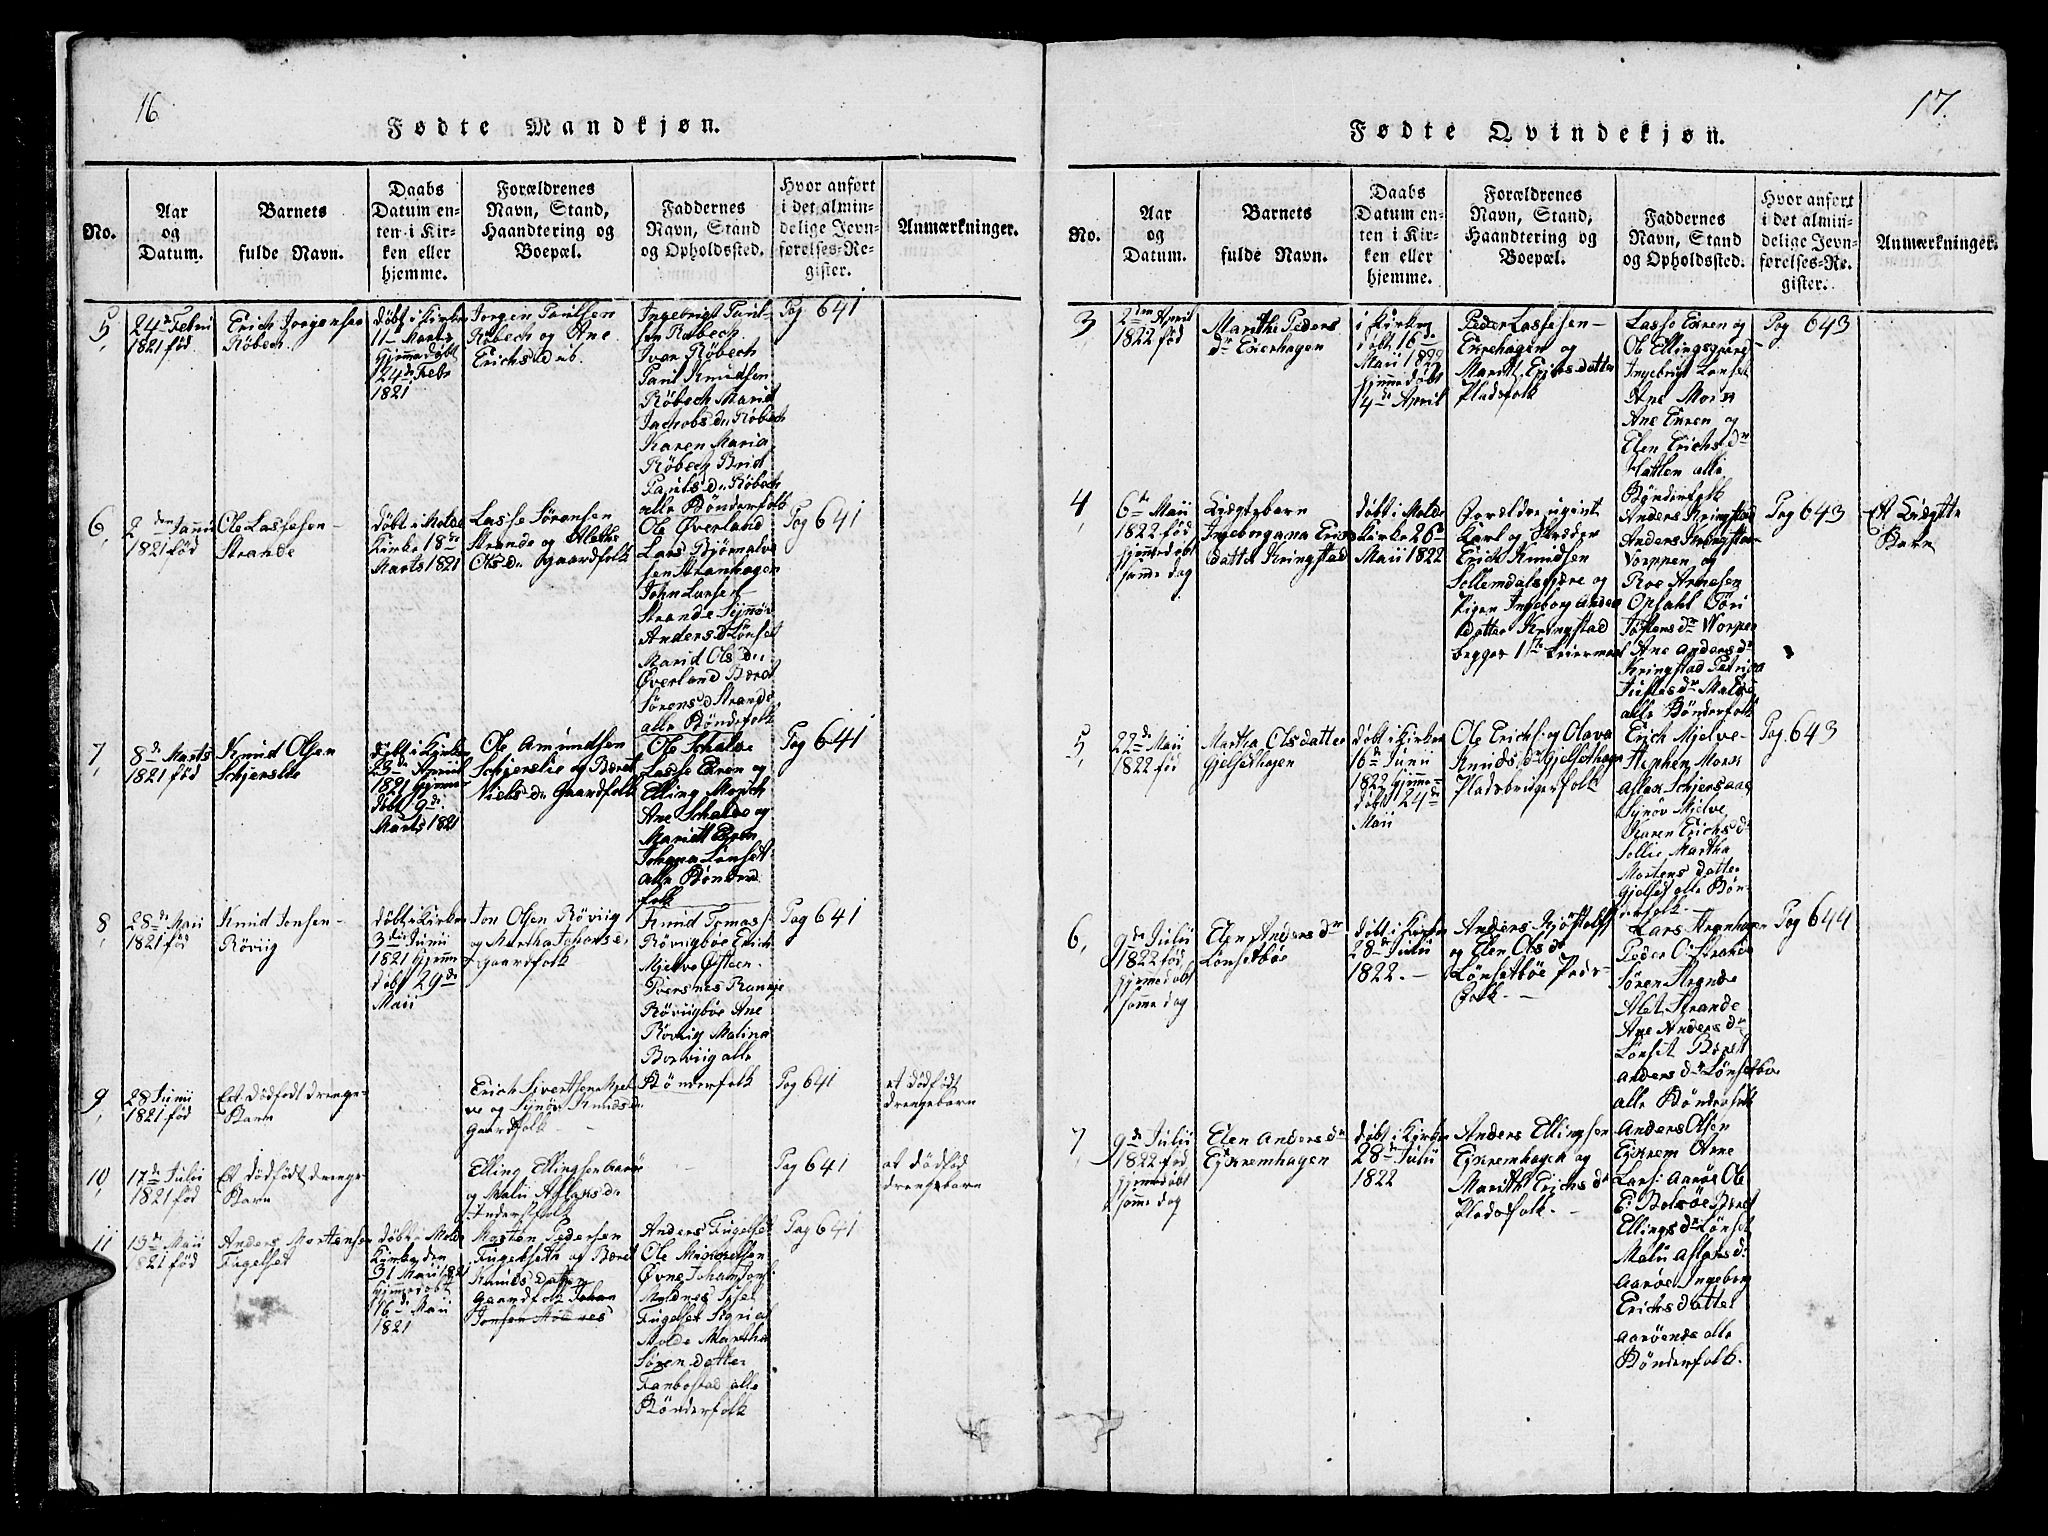 16
Fødte Mandkjøn.
No.
Aar
og
Datum.
Barnets
fulde Navn.
Daabs
Datum en-
ten i Kir-
ken eller
hjemme.
Forældrenes
Navn, Stand,
Haandtering og
Boepæl.
Faddernes
Navn, Stand
og Opholdssted.
Hvor anført
i det almin-
delige Jevn-
førelses-Re-
gister.
Anmærkninger.
5,
24de Febri
1821 fød
Erich Jørgensen
Røbech.
døbt i Kirken
11 Marts
hjemmedøbt
24de Febr
1821
Jørgen Paulsen
Røbech og Ane
Erichsd
Ingebrigt Paul-
sen Røbech
Ivar Røbech
Paul Knudsen
Røbech Marit
Jachobs dr Røbech
Karen Maria
Røbech Brid
Pauls dr Røbech
alle Bønderfolk
Pag 641
6,
2den Janu
1821 fød
Ole Lassesen
Strande
døbt i Molde
Kirke 18de
Marts 1821
Lasse Sørensen
Strande og Alethe
Ols dr Gaardfolk
Ole Øverland
Lars Bjørnalve
sen Stranhagen
John Larsen
Strande Synnøv
Anders d Lønset
Marid Ols dr
Øverland Beret
Sørens d Strande
alle Bønderfolk
Pag 641
7,
8de Marts
1821 fød
Knud Olsen
Schjerslie
døbt i Kirken
23de April
1821 hjemme
døbt 9de
Marts 1821
Ole Amundsen
Schjerslie og Beret
Niels dr Gaardfolk
Ole Schalve
Lasse Eren og
Elling Moesch
Ane Schalve og
Maritt Eren
Johana Lønset
alle Bønder
folk
Pag 641
8,
28de Maii
1821 fød
Knud Jonsen
Røviig
døbt i Kirken
3die Junii
1821 hjemme
døbt 29de
Maii
Jon Olsen Røviig
og Martha Johans d
Gaardfolk
Knud Tomas
Røvigbøe Erich
Mjelve Østeen
Tversnes Ranneje
Røviigbøe Ane
Røviig Malina
Borviig alle
Bønderfolk
Pag 641
9,
28 Junii
1821 fød
Et Dødfødt drenge-
Barn
Erich Sivertsen Mjel
ve og Synøv Knuds dr
Gaardfolk
Pag 641
et Dødfødt
Drengebarn
10,
17de Julii
1821 fød
Et dødfødt drenge-
Barn
Elling Ellingsen Aarø
og Malii Aslaks dr
Indersfolk
Pag 641
et dødfød
drengebarn
11,
15de Maii
1821 fød
Anders Mortensen
Fugelset
døbt i Molde
Kirke den
31 Maii 1821
hjemmedøbt
16de Maii
1821
Morten Pedersen
Fugelsetn og Beret
Knuds datter
Gaardfolk Johan
Jonsen Moldnes
Anders Fugelset
Ole Mickkelsen
Øvne Johan Jons
Moldnes Isse
Fugelset Sigri at
Molde Martha
Søren datter
Fanbostad alle
Bønderfolk
Pag 641
17.
Fødte Qvindekjøn.
No.
Aar
og
Datum.
Barnets
fulde Navn.
Daabs
Datum en-
ten i Kir-
ken eller
hjemme.
Forældrenes
Navn, Stand,
Haandtering og
Boepæl.
Faddernes
Navn, Stand
og Opholdssted.
Hvor anført
i det almin-
delige Jevn-
førelses-Re-
gister.
Anmærkninger.
3,
2den April
1822 fød
Marithe Peders
dr Exerhagen
i Kirken
døbt 16de
Maii 1822
hjemmedøbt
4de April
Peder Lassesen
Exrehagen og
Maritt Erichsdatter
Pladsfolk
Lasse Exren og
Ole Ellingsgaard
Ingebrigt Lønset
Ane Moesk
Ane Exren og
Elen Erichs dr
Hatlen alle
Bønderfolk
Pag 643
4,
6te Maii
1822 fød
hjemmedøbt
samme dag
Uægtebarn
Ingeborgana Erichs
datter Kringstad
døbt i Molde
Kirke 26
Maii 1822
Foreldre ugivt
Karl og Skredder
Erich Knudsen
Sollemdalsfjære og
Pigen Ingeborg Anders
datter Kringstad
begges 1ste Leiermaal
Anders Kringstad
Anders Kringstad
Vorppen og
Roe Arnesen
Opsahl Søri
Jostens dr Vorpen
Ane Anders dr
Kringstad Petrica
Justes dr Malde
alle Bønderfolk
Pag 643
Et Uægtte
Barn
5,
22de Maii
1822 fød
Martha Olsdatter
Gjelsethagen
døbt i Kirken
16de Junii
1822 hjemme
døbt 24de
Maii
Ole Erichs og Olava
Knuds dr Gjelsethagen
Pladsbrugerfolk
Erich Mjelve
Stephen Moesk
Aslak Schjersaae
Synøv Mjelve
Karen Erichs dr
Sollie Martha
Mortens datter
Gjelset alle Bøn
derfolk
Pag. 643
6,
9de Julii
1822 fød
hjemmedøbt
samme dag
Elen Anders dr
Lønsetbøe
døbt i Kirken
28de Julii
1822.
Anders Kjøstolfs
og Elen Ols dr
Lønsetbøe Plads-
Folk.
Lars Stranhagen
Peder O Strande
Søren Strande
Alet Strande
Ane Anders dr
Lønset Beret
Anders dr Lønsetbøe
alle Bønderfolk
Pag 644
7,
9de Julii
1822 fød
hjemmedøbt
samme dag
Elen Anders dr
Ejkremhagen
døbt i Kirken
28de Julii
1822
Anders Ellingsen
Ejkremhagen og
Marith Erichs dr
Pladsfolk.
Anders Olsen
Eykrem Arne
Larsi Aarøe Ole
E. Bolsøe Beret
Ellings dr Lønset
Malii Aslaks dr
Aarøe Ingeborg
Erichs datter
Aarøende alle
Bønderfolk.